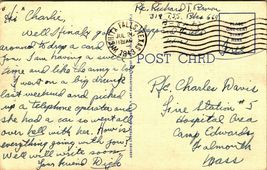 Hi Charlie,
Well I finally got
around to writing a card
to you. I am having a swell
time and like the army a lot.
I was on a big drunk
last weekend and picked
up a telephone operator and
she had a car so went all
over hell with her. How is
everything going with you?
Will write soon.
Your friend Dick
WICHITA FALLS
TEXAS
Pvt. Richard T.
POST CARD
Pfc Charles Davis
Fire Station #5
Hospital Area
Camp Edwards
Falmouth
Mass